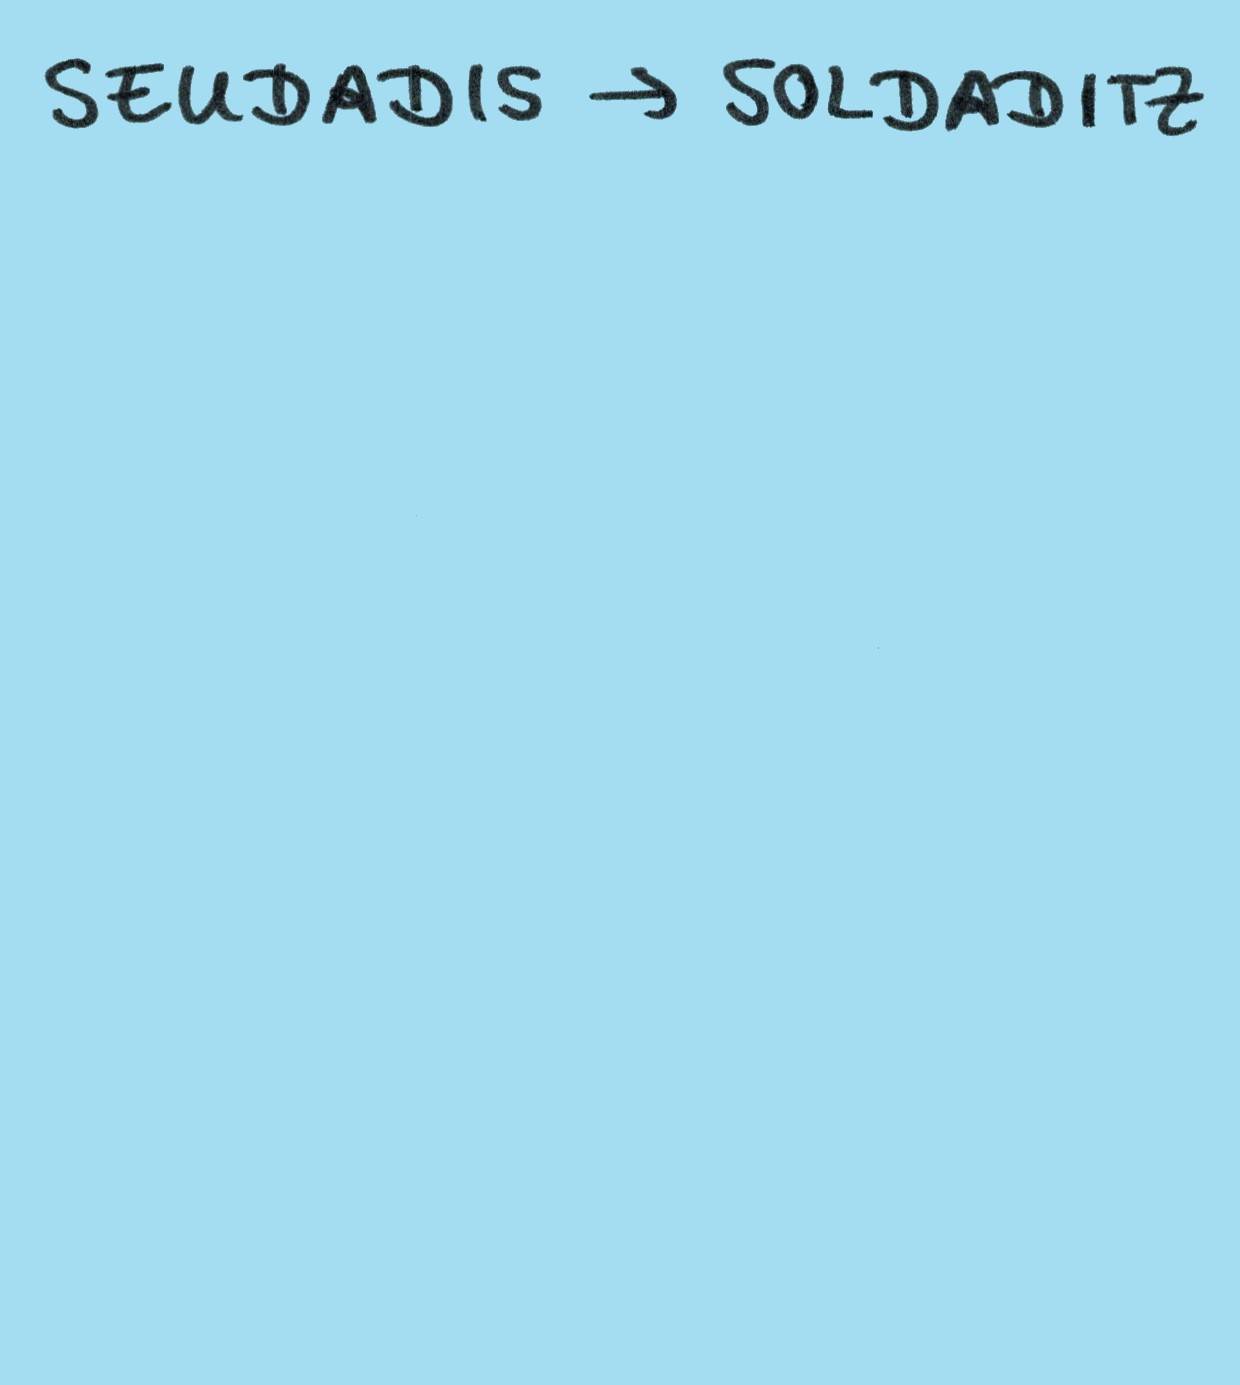 SEUDADIS → SOLDADITZ